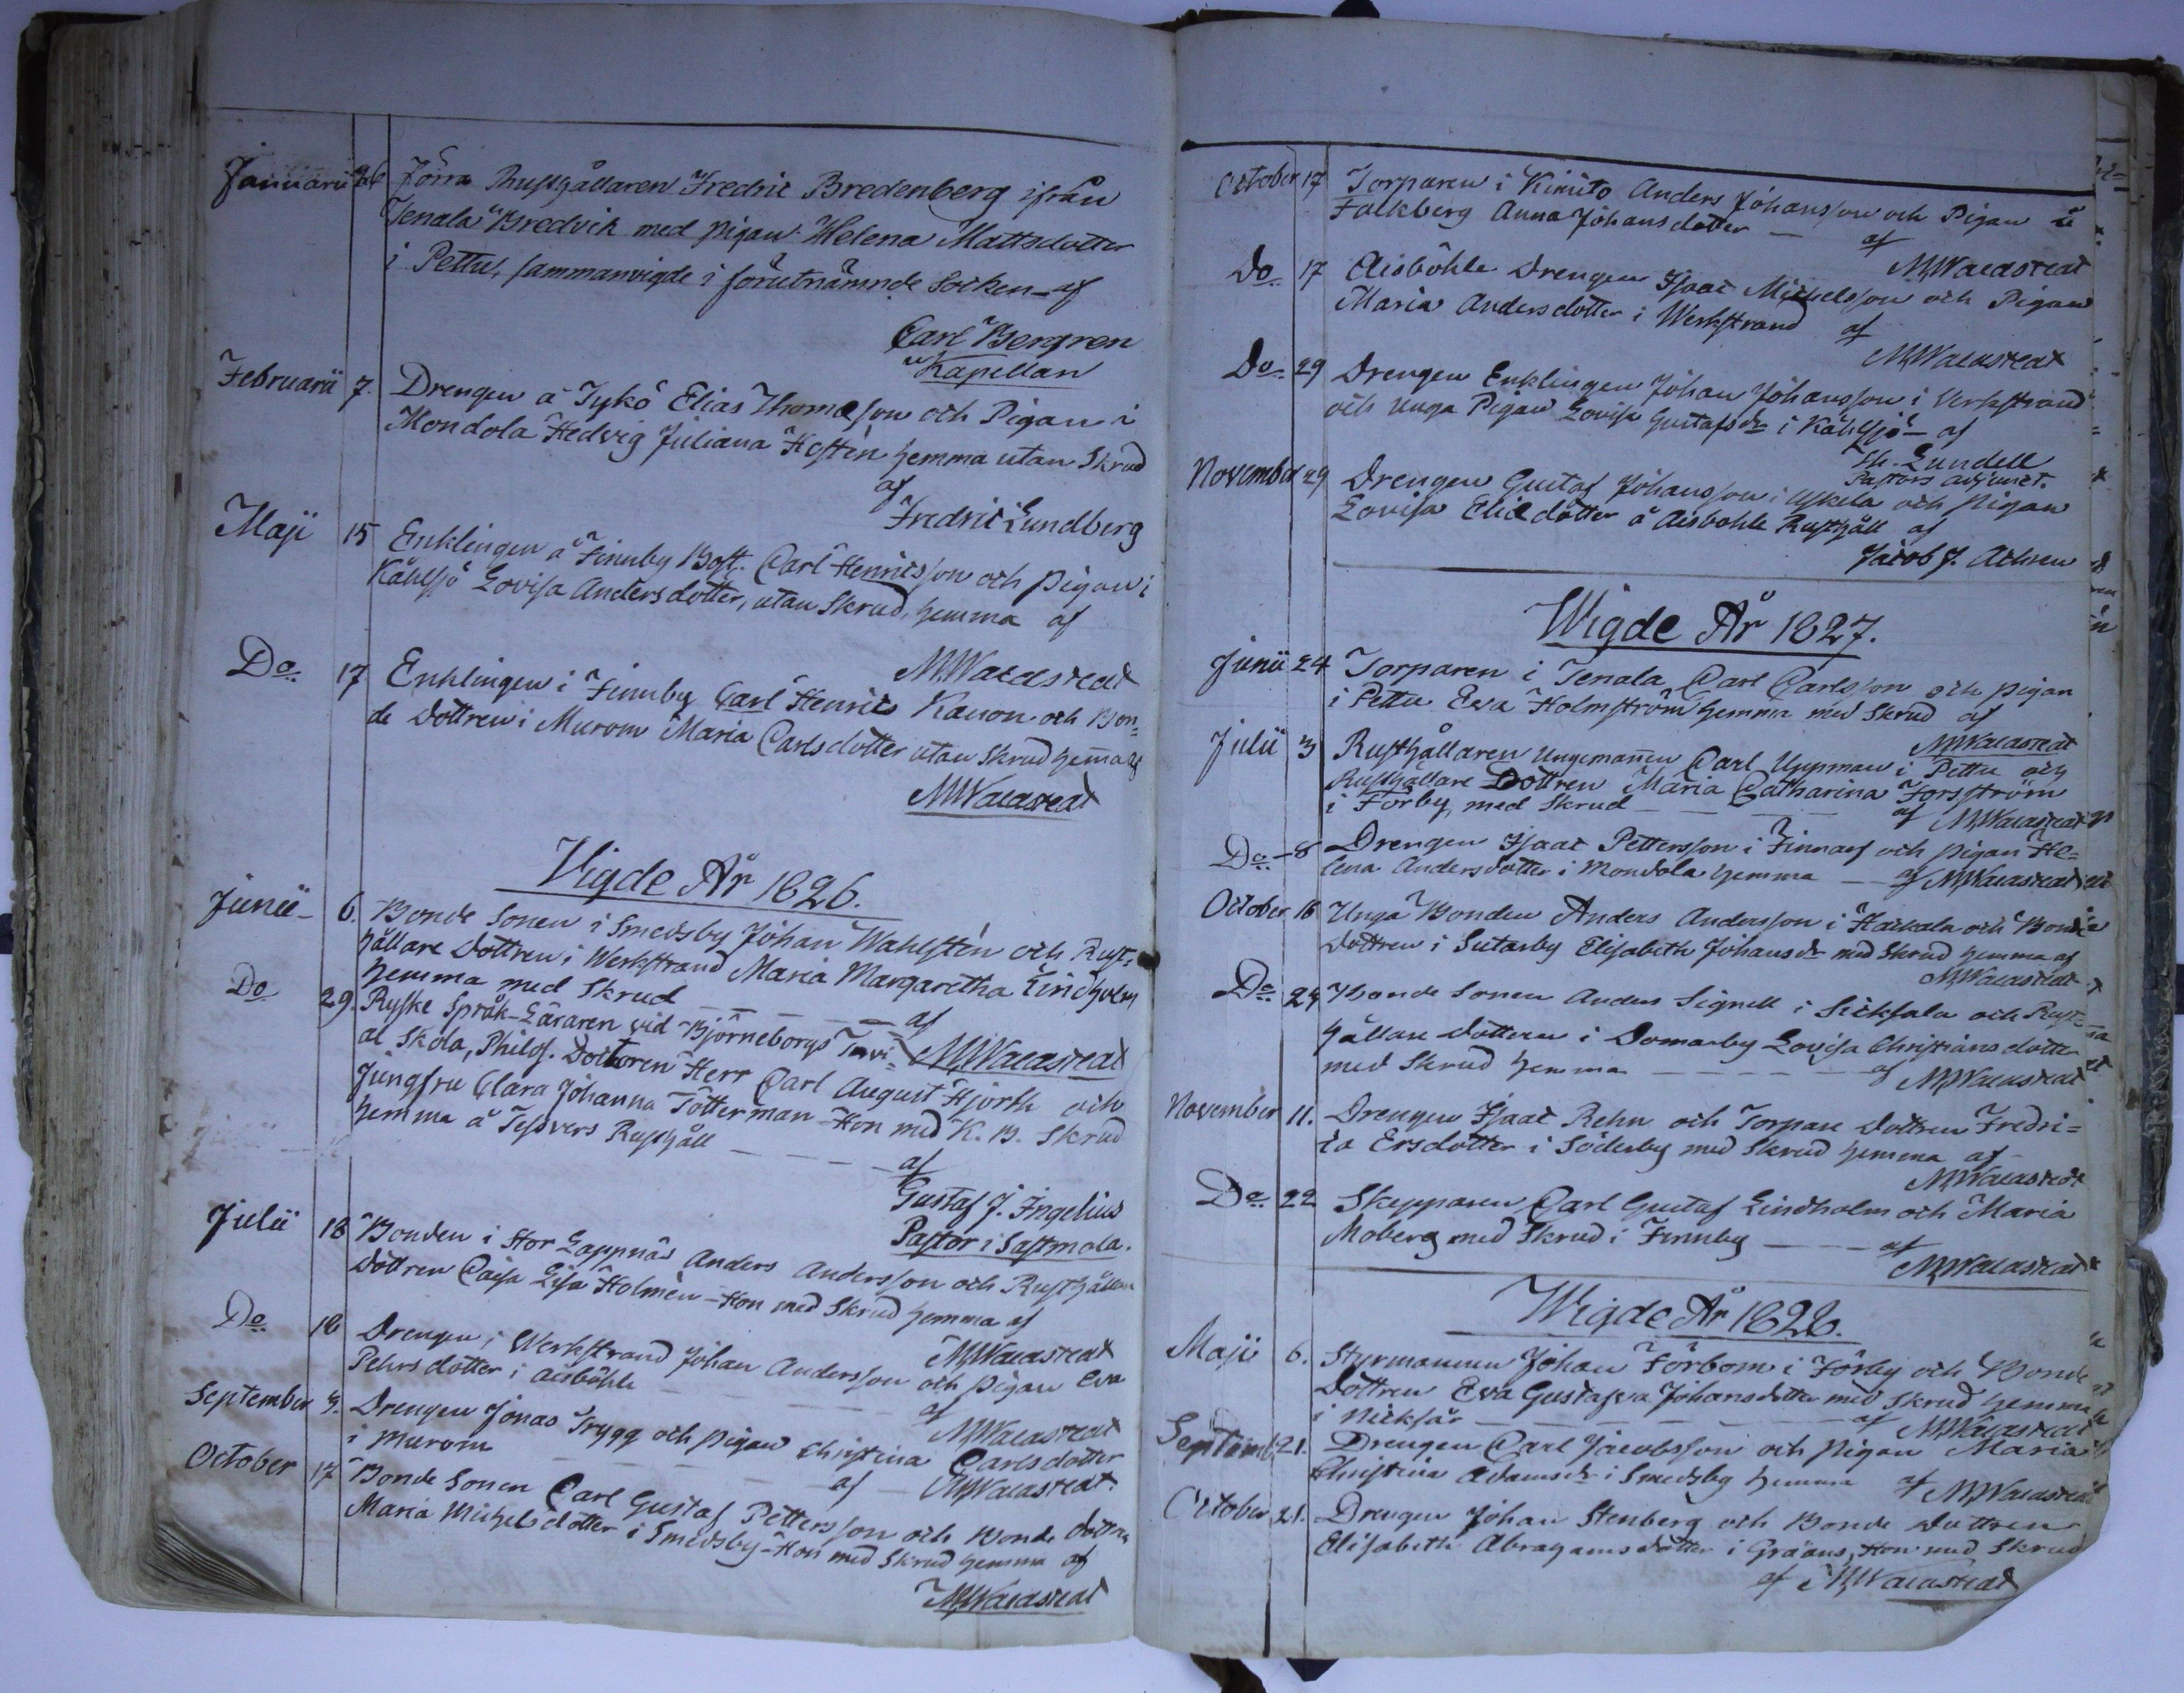 Januarii 26 Förra Rusthållaren Fredric Bredenberg ifrån
Tenala Bredvik med pigan Helena Mattsdotter
i Pettu, sammanvigde i förutnämnde Socken af
Carl Bergren
Kapellan
Februarii 7. Drengen å Tykö Elias Thomasson och Pigan i
Mondola Hedvig Juliana Hestén hemma utan Skrud
af
Fredric Lundberg
Maji 15 Enklingen å Finnby Bost. Carl Henricsson och pigan i
Kåhlsjö Lovisa Andersdotter, utan Skrud, hemma af
M. Walastedt
Do 17 Enklingen i Finnby Carl Henric Kanon och Bon-
de Dottren i Murom Maria Carlsdotter utan Skrud hemma af
M. Walastedt
Vigde År 1826.
Junii 6. Bonde Sonen i Smedsby Johan Wahlstén och Rust-
hållare Dottren i Werkstrand Maria Margaretha Lindholm
hemma med Skrud — af
M. Walastedt
Do 29. Ryske Språk-Läraren vid Björneborgs Trivi-
al Skola, Philos. Doctoren Herr Carl August Hjorth och
Jungfru Clara Johanna Tötterman Hon med K. B. Skrud
hemma å Tessvers Rusthåll — af
Gustaf J. Ingelius
Pastor i Sastmola.
Julii 18 Bonden i Stor Lappnäs Anders Andersson och Rusthållare
Dottren Caisa Lisa Holmén — Hon med Skrud hemma af
M. Walastedt
Do 18 Drengen i Werkstrand Johan Andersson och pigan Eva
Pehrsdotter i Aisböhle — af
M. Walastedt
September 3. Drengen Jonas Trygg och pigan Christina Carlsdotter
i Murom — af M. Walastedt.
October 17 Bonde Sonen Carl Gustaf Pettersson och Bonde dottren
Maria Michelsdotter i Smedsby — Hon med Skrud hemma af
M. Walastedt
October 17 Torparen i Kimito Anders Johansson och Pigan å
Falkberg Anna Johansdotter — af
M. Walastedt
Do 17 Aisböhle Drengen Isaac Michelsson och Pigan
Maria Andersdotter i Werkstrand af
M. Walastedt
Do 29 Drengen Enklingen Johan Johansson i Verkstrand
och Unga Pigan Lovisa Gustafsdr i Kåhlsjö — af
Lundell
Pastors Adjunct.
November 29 Drengen Gustaf Johansson i Yskela och Pigan
Lovisa Eliædotter å Aisböhle Rusthåll af
Jacob J. Achren
Wigde År 1827.
Junii 24 Torparen i Tenala Carl Carlsson och pigan
i Pettu Eva Holmström hemma med Skrud af
M. Walastedt
Julii 3 Rusthållaren Ungemannen Carl Uppman i Pettu och
Rusthållare Dottren Maria Catharina Forsström
i Förby, med Skrud — af M. Walastedt
Do — 8 Drengen Isaac Pettersson i Finnäs och pigan He-
lena Andersdotter i Mondola hemma — af M. Walastedt
October 16 Unga Bonden Anders Andersson i Haikala och Bonde
Dottren i Sutarby Elisabeth Johansdr med Skrud hemma af
M. Walastedt
Do 24 Bonde Sonen Anders Signell i Sicksala och Rust-
hållare dotteren i Domarby Lovisa Christiansdotter
med Skrud hemma — af M. Walastedt
November 11. Drengen Isaac Rehn och Torpare Dottren Fredri-
ca Ersdotter i Söderby med Skrud hemma af
M. Walastedt
Do 22 Skepparen Carl Gustaf Lindholm och Maria
Moberg med Skrud i Finnby — af
M. Walastedt
Wigde År 1828.
Maji 6. Styrmannen Johan Förbom i Förby och Bonde
Dottren Eva Gustafva Johansdotter med Skrud hemma
i Nicksår — af M. Walastedt
Septemb. 21. Drengen Carl Jacobsson och pigan Maria
Christina Adamsdr i Smedsby hemma af M. Walastedt
October 21. Drengen Johan Stenberg och Bonde Dottren
Elisabeth Abrahamsdotter i Gråans, Hon med Skrud
af M. Walastedt